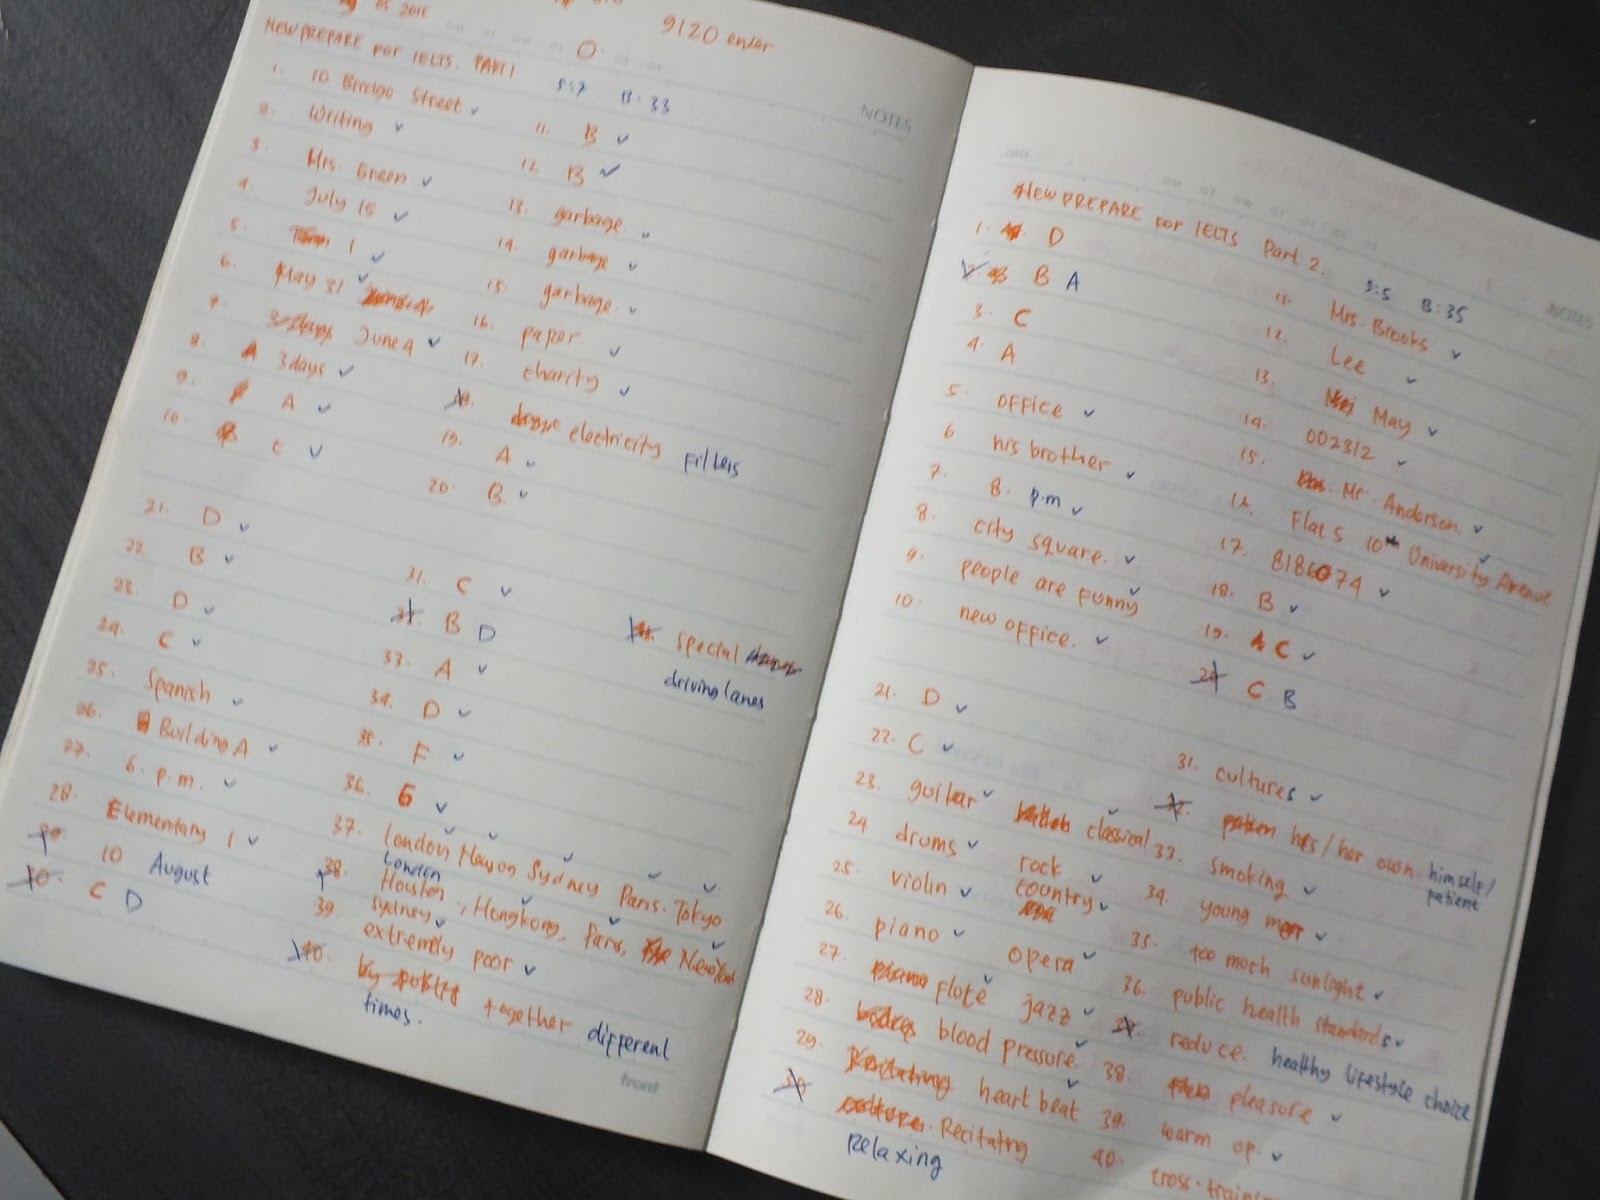 05 2015
9120 enter
NEW PREPARE FOR IELTS. PART 1
S:7 B:33
NOTES
1. 10 Bridge Street ✓
2. Writing ✓
3. Mrs. Green ✓
4. July 15 ✓
5. Term 1 ✓
6. May 31 ✓
7. 3 days June 4 ✓
8. A 3 days ✓
9. A ✓
10. B C ✓
11. B ✓
12. B ✓
13. garbage ✓
14. garbage ✓
15. garbage. ✓
16. paper ✓
17. charity ✓
18. electricity Filters
19. A ✓
20. B. ✓
21. D ✓
22. B ✓
23. D ✓
24. C ✓
25. Spanish ✓
26. Building A ✓
27. 6. p.m. ✓
28. Elementary 1 ✓
29. 10 August
30. C D
31. C ✓
32. B D
33. A ✓
34. D ✓
35. F ✓
36. G ✓
37. London Sydney Paris. Tokyo
38. London Houston, Hongkong, Paris, New York
Sydney ✓
39. extremely poor ✓
40. together different
times.
41. special
driving lanes
NEW PREPARE FOR IELTS Part 2.
S:5 B:35
NOTES
1. D
2. B A
3. C
4. A
5. OFFICE ✓
6. his brother ✓
7. 8. p.m ✓
8. city square. ✓
9. people are funny ✓
10. new office. ✓
11. Mrs. Brooks ✓
12. Lee ✓
13. May ✓
14. 002312 ✓
15. Mr. Anderson. ✓
16. Flat 5 10th University Avenue ✓
17. 8186074 ✓
18. B ✓
19. A C ✓
20. C B
21. D ✓
22. C ✓
23. guitar ✓ classical ✓
24 drums ✓ rock ✓
25. violin ✓ country ✓
26. piano ✓ opera ✓
27. piano flote ✓ jazz ✓
28. bodies blood pressure. ✓
29. Recitating heart beat ✓
30. culture. Recitating
relaxing
31. cultures ✓
32. patien his/her own. himself/
patient
33. smoking ✓
34. young men ✓
35. too much sunlight ✓
36. public health standards ✓
37. reduce. healthy lifestyle choice
38. pleasure ✓
39. warm op. ✓
40. cross-training